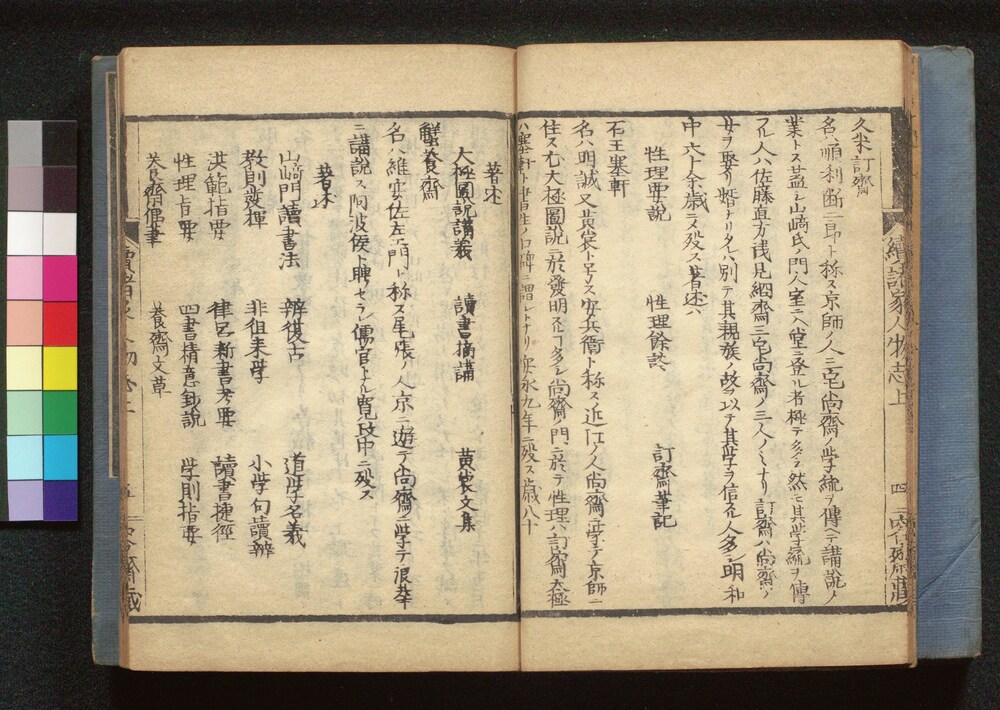 久米訂齋
名ハ順利断二郎ト称ス京師ノ人三宅尚齋ノ学統ヲ傳ヘテ講説ノ
業トス蓋シ山崎氏ノ門人室ニ入堂ニ登ル者極テ多シ然モ其学統ヲ傳
フル人ハ佐藤直方浅見絅齋三宅尚齋ノ三人ノミナリ訂齋ハ尚齋ノ
女ヲ娶リ婿ナリ名ハ別テ其親族ノ故ヲ以テ其学ヲ信スル人多シ明和
中六十余歳ニ殁ス著述ハ
性理要説 性理餘談 訂齋筆記
石王塞軒
名ハ明誠又黄裳ト号ス安兵衛ト称ス近江ノ人尚齋ニ学テ京師ニ
住ス尤大極圖説ニ於發明スル丁多シ尚齋ノ門ニ於テ性理ハ訂齋太極
ハ塞軒ト書生ノ口碑ニ謂シトナリ安永九年ニ殁ス歳八十
續諸家人物志上
四
著述
大極圖説講義 讀書摘講 黄裳文集
蟹養齋
名ハ維安佐左エ門ト称ス尾張ノ人京ニ遊テ尚齋ニ学テ後華
ニ講説ス阿波侯ニ聘セラレ儒官トナル寛政中ニ殁ス
著述
山﨑門讀書法 辨復古 道学名義
教則發揮 非徂徠学 小学句讀辨
洪範指要 律呂新書考要 讀書捷徑
性理指要 四書精意鈔説 学則指要
養齋偶筆 養齋文草
五